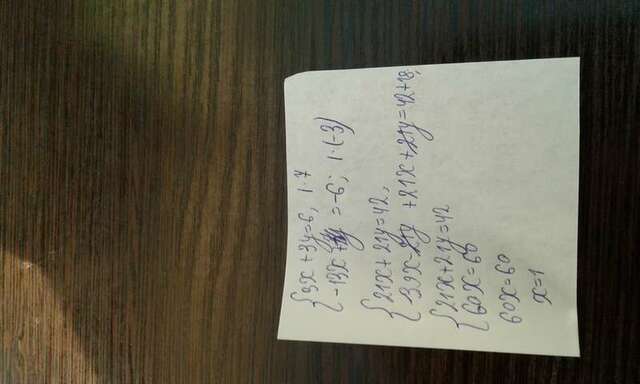 {3x+3y=6, |·7
{-13x+7y=-6; |·(-3)
{21x+21y=42,
{39x-21y+21x+21y=42+18;
{21x+21y=42
{60x=60
60x=60
x=1